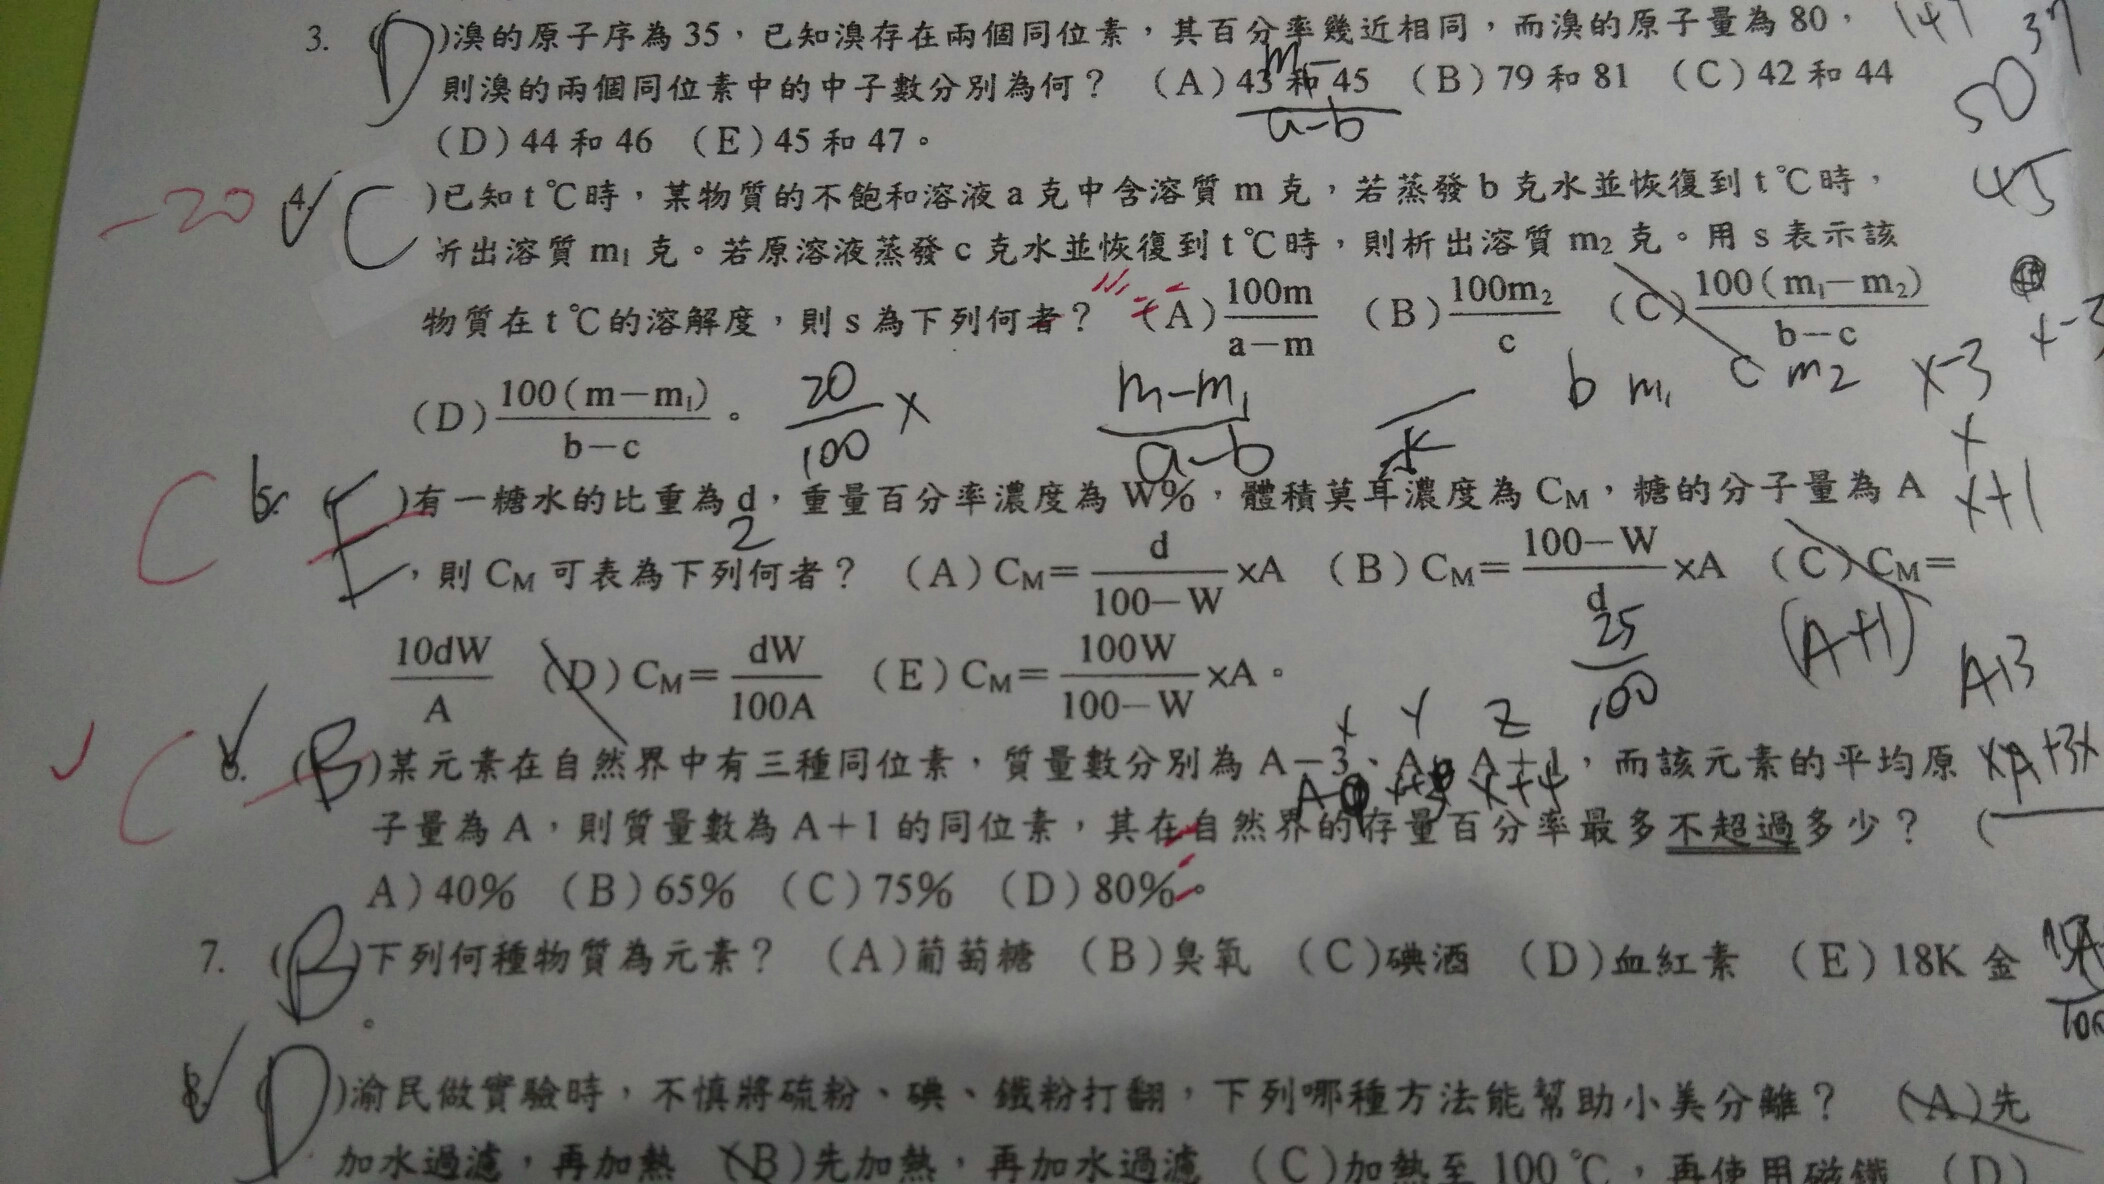 3. (D)溴的原子序為 35，已知溴存在兩個同位素，其百分率幾近相同，而溴的原子量為 80，
則溴的兩個同位素中的中子數分別為何？ （A）43 和 45 （B）79 和 81 （C）42 和 44
（D）44 和 46 （E）45 和 47。
a-b
50
45
-20 4. C )已知 t ℃時，某物質的不飽和溶液 a 克中含溶質 m 克，若蒸發 b 克水並恢復到 t ℃時，
析出溶質 m₁ 克。若原溶液蒸發 c 克水並恢復到 t ℃時，則析出溶質 m₂ 克。用 s 表示該
物質在 t ℃的溶解度，則 s 為下列何者？ （A）100m/a－m （B）100m₂/c （C）100(m₁－m₂)/b－c
（D）100(m－m₁)/b－c。
20/100 x
m-m₁/a-b
b m₁ c m₂
x-3
x
x+1
C 5. (E)有一糖水的比重為 d，重量百分率濃度為 W%，體積莫耳濃度為 CM，糖的分子量為 A
，則 CM 可表為下列何者？ （A）CM＝d/100－W×A （B）CM＝100－W/d×A （C）CM＝
10dW/A （D）CM＝dW/100A （E）CM＝100W/100－W×A。
2
25/100
(A+1)
A+3
x Y Z
C 6. (B)某元素在自然界中有三種同位素，質量數分別為 A－3、A、A＋1，而該元素的平均原
子量為 A，則質量數為 A＋1 的同位素，其在自然界的存量百分率最多不超過多少？ （
A）40% （B）65% （C）75% （D）80%。
x+4
7. (B)下列何種物質為元素？ （A）葡萄糖 （B）臭氧 （C）碘酒 （D）血紅素 （E）18K 金
。
8. (D)渝民做實驗時，不慎將硫粉、碘、鐵粉打翻，下列哪種方法能幫助小美分離？ （A）先
加水過濾，再加熱 （B）先加熱，再加水過濾 （C）加熱至 100 ℃，再使用磁鐵 （D）